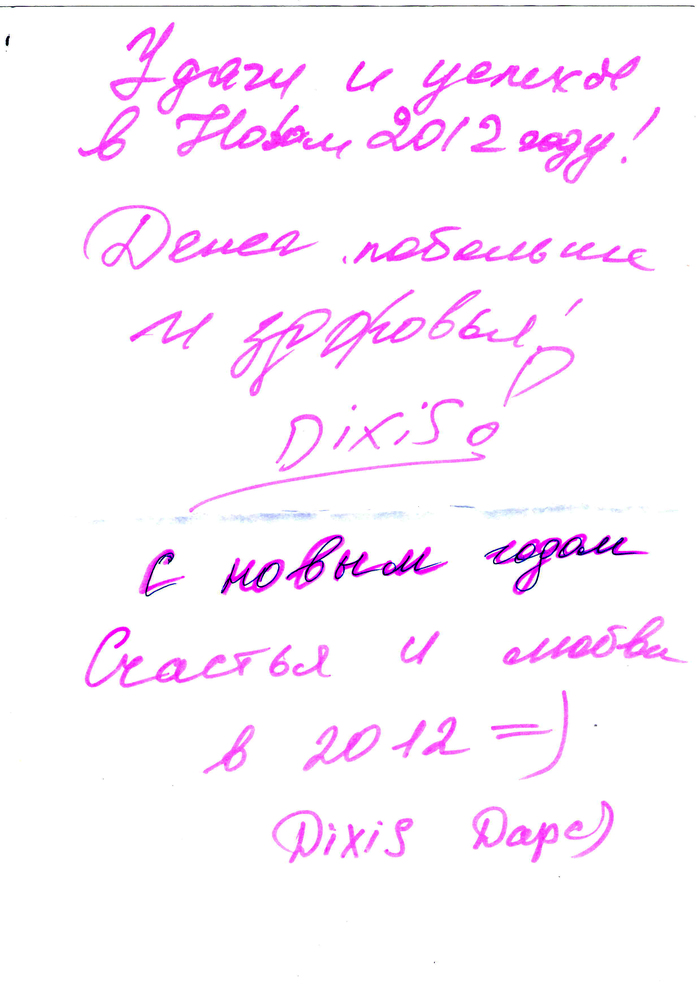 Удачи и успехов
в Новом 2012 году!
Денег побольше
и здоровья!
Dixis
С новым годом
Счастья и любви
в 2012 =)
Dixis Дарс)